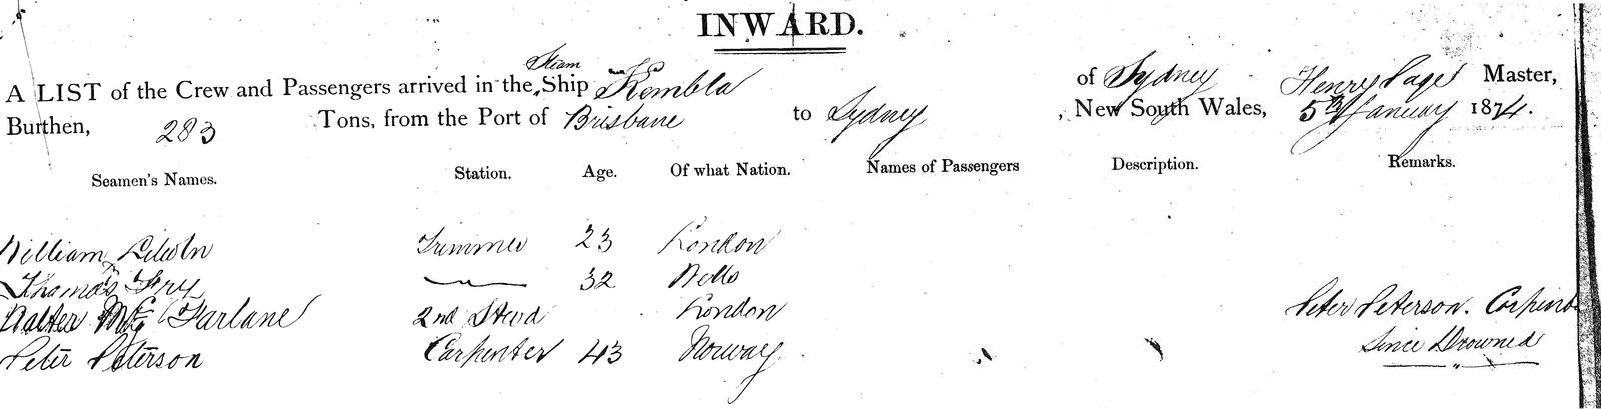 INWARD.
Steam
A LIST of the Crew and Passengers arrived in the Ship Kembla of Sydney Henry Page Master,
Burthen, 283 Tons, from the Port of Brisbane to Sydney , New South Wales, 5th January 1874.
Seamen's Names. Station. Age. Of what Nation. Names of Passengers Description. Remarks.
William Trimmer 23 London
Thomas Fry 32 Wells
Walter McFarlane 2nd Stewd London Peter Peterson. Carpenter
Peter Peterson Carpenter 43 Norway Since Drowned